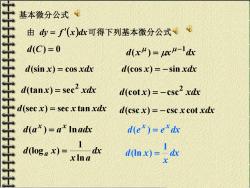 基本微分公式
由 dy = f′(x)dx可得下列基本微分公式
d(C) = 0
d(x^μ) = μx^{μ−1}dx
d(sin x) = cos xdx
d(cos x) = −sin xdx
d(tan x) = sec² xdx
d(cot x) = −csc² xdx
d(sec x) = sec x tan xdx
d(csc x) = −csc x cot xdx
d(a^x) = a^x ln adx
d(e^x) = e^x dx
d(log_a x) = \frac{1}{x ln a} dx
d(ln x) = \frac{1}{x} dx